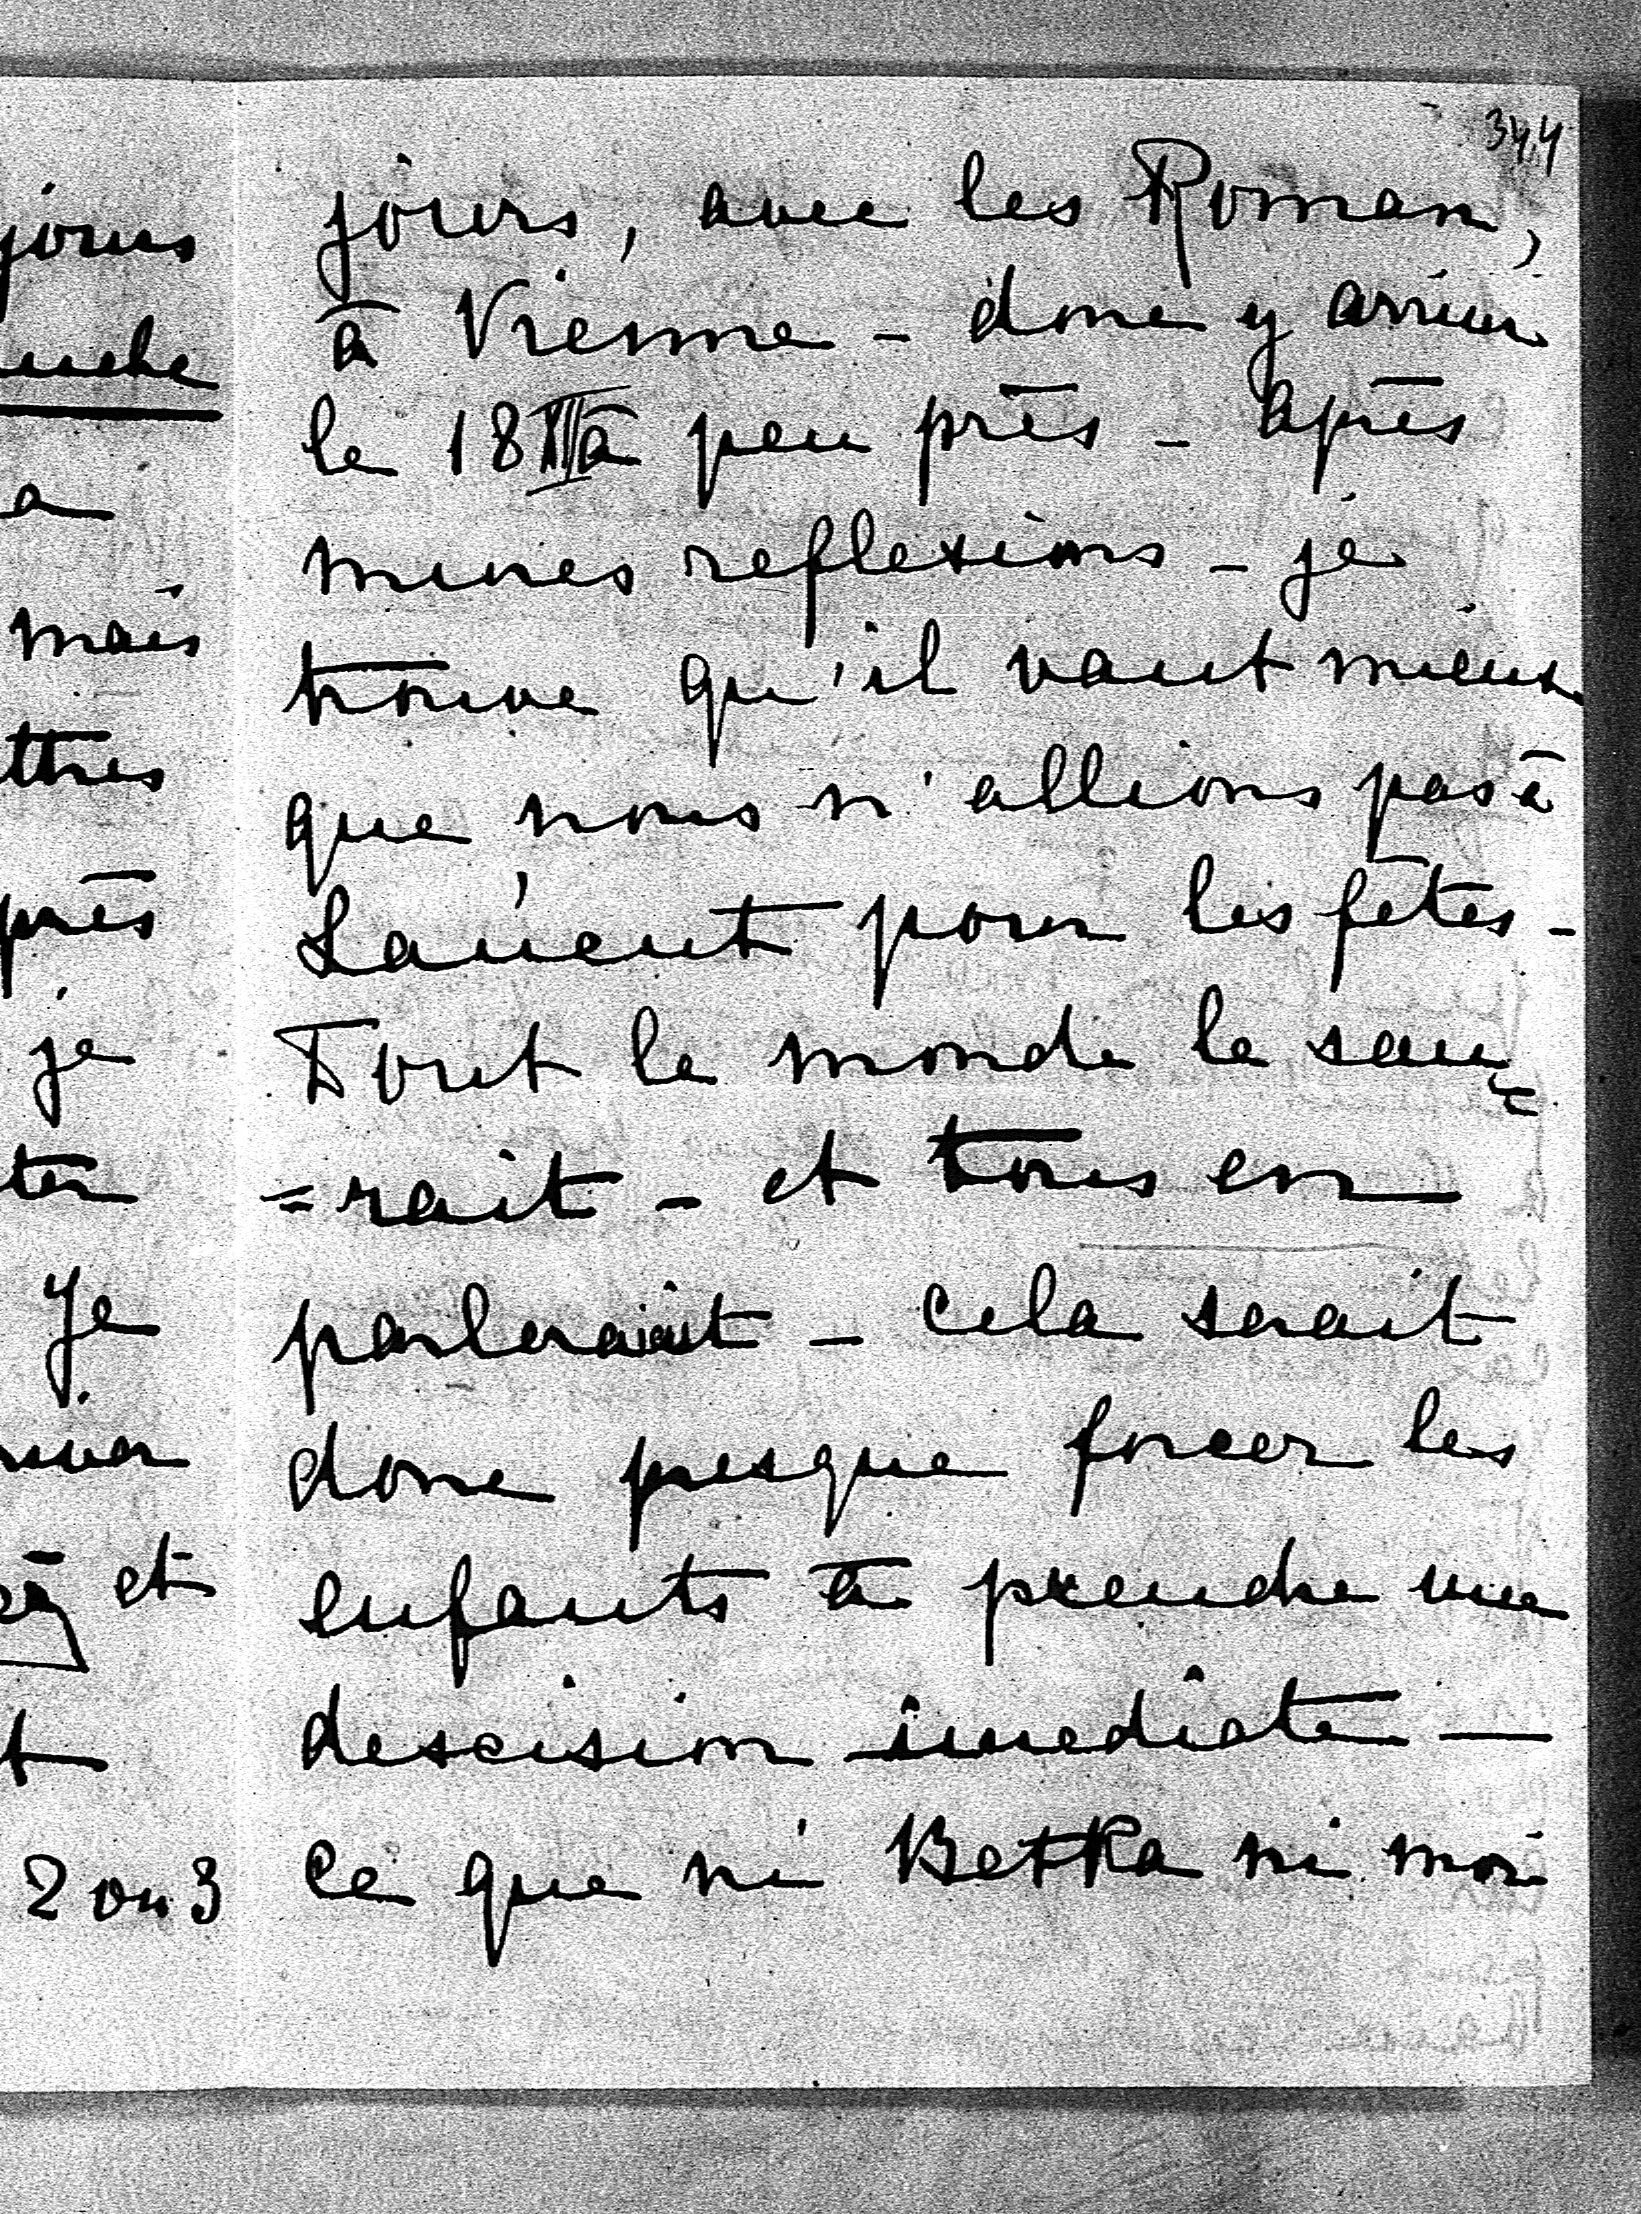 344
jours, avec les Roman,
à Vienne - donc y arriver
le 18 XII à peu près - après
mures reflexions - je
trouve qu'il vaut mieux
que nous n'allions pas à
Laùcut pour les fêtes -
Tout le monde le sau=
=rait - et tous en
parleraient - cela serait
donc presque forcer les
enfants à prendre une
descision imediate -
ce que ni Betka ni moi
jours
uche
a
mais
ttres
près
je
ter
Je
et
t
2 ou 3